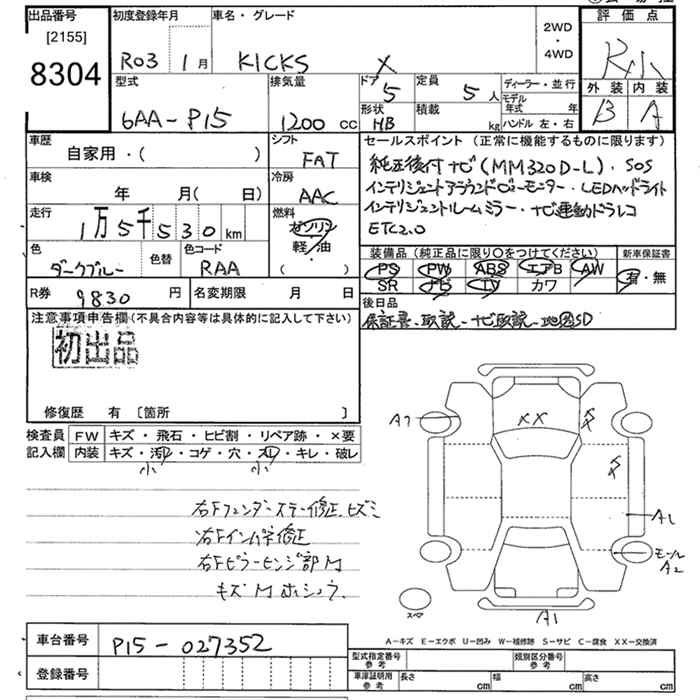 出品番号 初度登録年月 車名・グレード 評価点
[2155] 2WD
8304 R03 1月 KICKS X ・ R小
4WD
型式 排気量 ドア 定員 ディーラー・並行 外装 内装
5 5人 モデル年式 年 B A
6AA-P15 1200cc 形状 HB 積載 kg ハンドル 左・右
車歴 シフト セールスポイント(正常に機能するものに限ります)
自家用・( ) FAT 純正後付ナビ(MM320D-L)・SOS
車検 冷房 インテリジェントアラウンドビューモニター・LEDヘッドライト
年 月( 日) AAC インテリジェントルームミラー・ナビ連動ドラレコ
走行 燃料 ETC2.0
1万5千530km ガソリン
軽・油
( )
色 色替 色コード 装備品(純正品に限り○をつけてください) 新車保証書
ダークブルー RAA PS PW ABS エアB AW 有・無
SR ナビ TV カワ
R券 9830円 名変期限 月 日 後日品
注意事項申告欄(不具合内容等は具体的に記入して下さい) 保証書、取説、ナビ取説、地図SD
初出品
修復歴 有 [箇所 ]
検査員 FW キズ・飛石・ヒビ割・リペア跡・×要
記入欄 内装 キズ・汚レ・コゲ・穴・スレ・キレ・破レ
小 小
右Fフェンダーステー修正、ヒズミ
右Fインパネ修正
右Fピラーヒンジ部M
キズM
A7 XX X X
A1
モール
A2
スペア
A1
A-キズ E-エクボ U-凹み W-補修跡 S-サビ C-腐食 XX-交換済
車台番号 P15-027352 型式指定番号 参考 類別区分番号 参考
登録番号 車庫証明用 参考 長さ cm 幅 cm 高さ cm